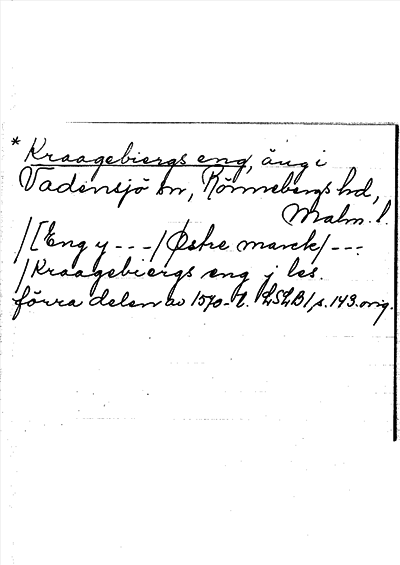 * Kraagebiergs eng, äng i
Vadensjö sn, Rönnebergs hd,
Malm. l.
/[Eng y - - -/ Østre marck/ - - -
/Kraagebiergs eng j les.
förra delen av 1570-t. LSLB 1 s. 143. orig.